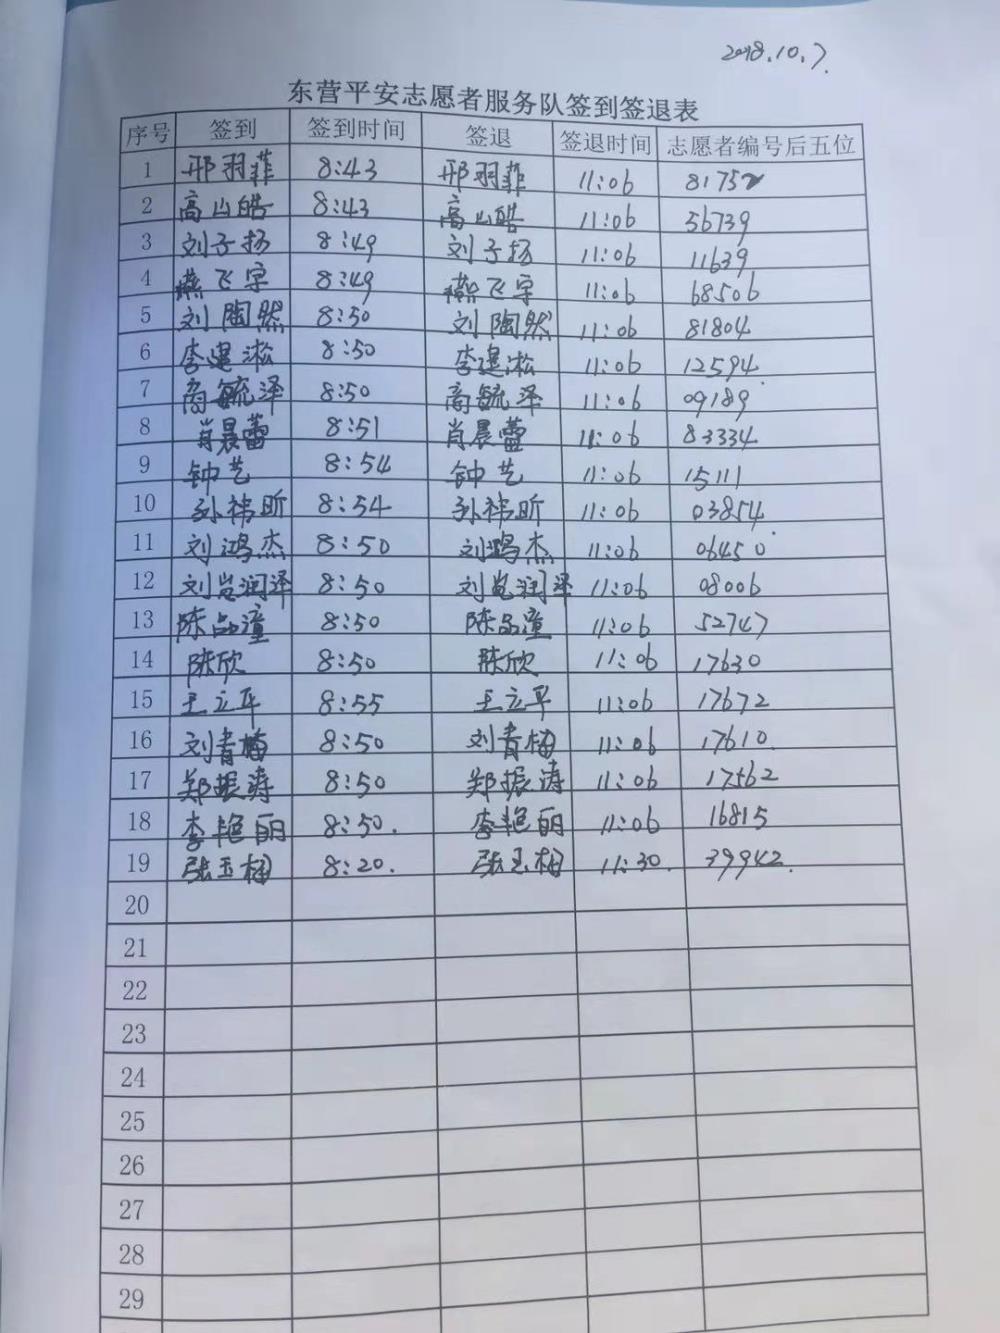 2018.10.7.
东营平安志愿者服务队签到签退表
序号 签到 签到时间 签退 签退时间 志愿者编号后五位
1 邢羽菲 8:43 邢羽菲 11:06 81752
2 高山皓 8:43 高山皓 11:06 56739
3 刘子扬 8:49 刘子扬 11:06 11639
4 燕飞宇 8:49 燕飞宇 11:06 68506
5 刘陶然 8:50 刘陶然 11:06 81804
6 李建淞 8:50 李建淞 11:06 12594
7 高毓泽 8:50 高毓泽 11:06 09189
8 肖晨蕾 8:51 肖晨蕾 11:06 83334
9 钟艺 8:54 钟艺 11:06 15111
10 孙祎昕 8:54 孙祎昕 11:06 03854
11 刘鸿杰 8:50 刘鸿杰 11:06 06450
12 刘岜润泽 8:50 刘岜润泽 11:06 08006
13 陈品潼 8:50 陈品潼 11:06 52747
14 陈欣 8:50 陈欣 11:06 17630
15 王立平 8:55 王立平 11:06 17672
16 刘青梅 8:50 刘青梅 11:06 17610
17 郑振涛 8:50 郑振涛 11:06 17562
18 李艳丽 8:50. 李艳丽 11:06 16815
19 张玉梅 8:20. 张玉梅 11:30. 39942.
20
21
22
23
24
25
26
27
28
29